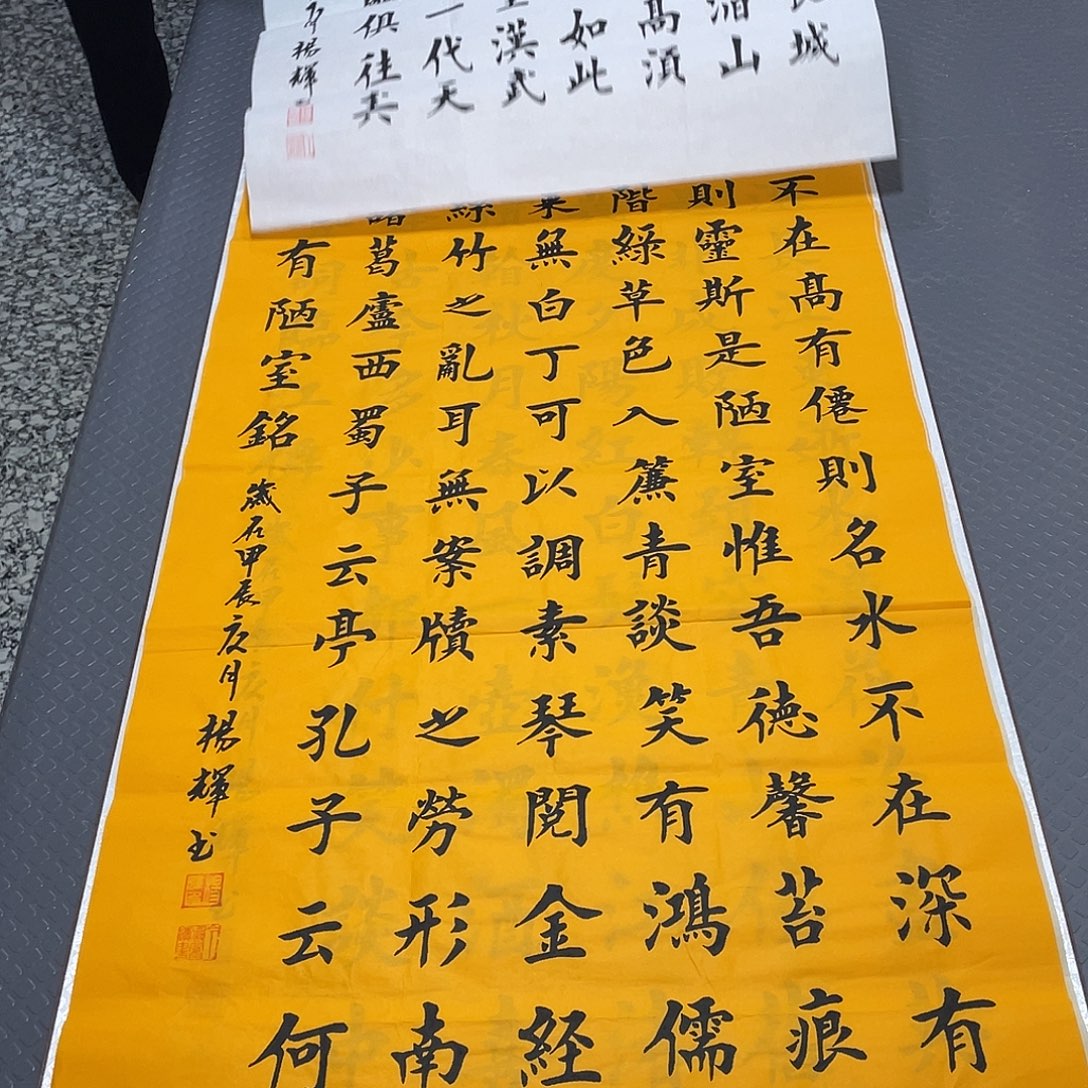 城
山
高須
如此
漢武
一代天
俱往矣
楊輝
不在高有僊則名水不在深有
則靈斯是陋室惟吾德馨苔痕
階綠草色入簾青談笑有鴻儒
無白丁可以調素琴閱金経
絲竹之亂耳無案牘之勞形南
諸葛廬西蜀子云亭孔子云何
有陋室銘
歲在甲辰 月楊輝书